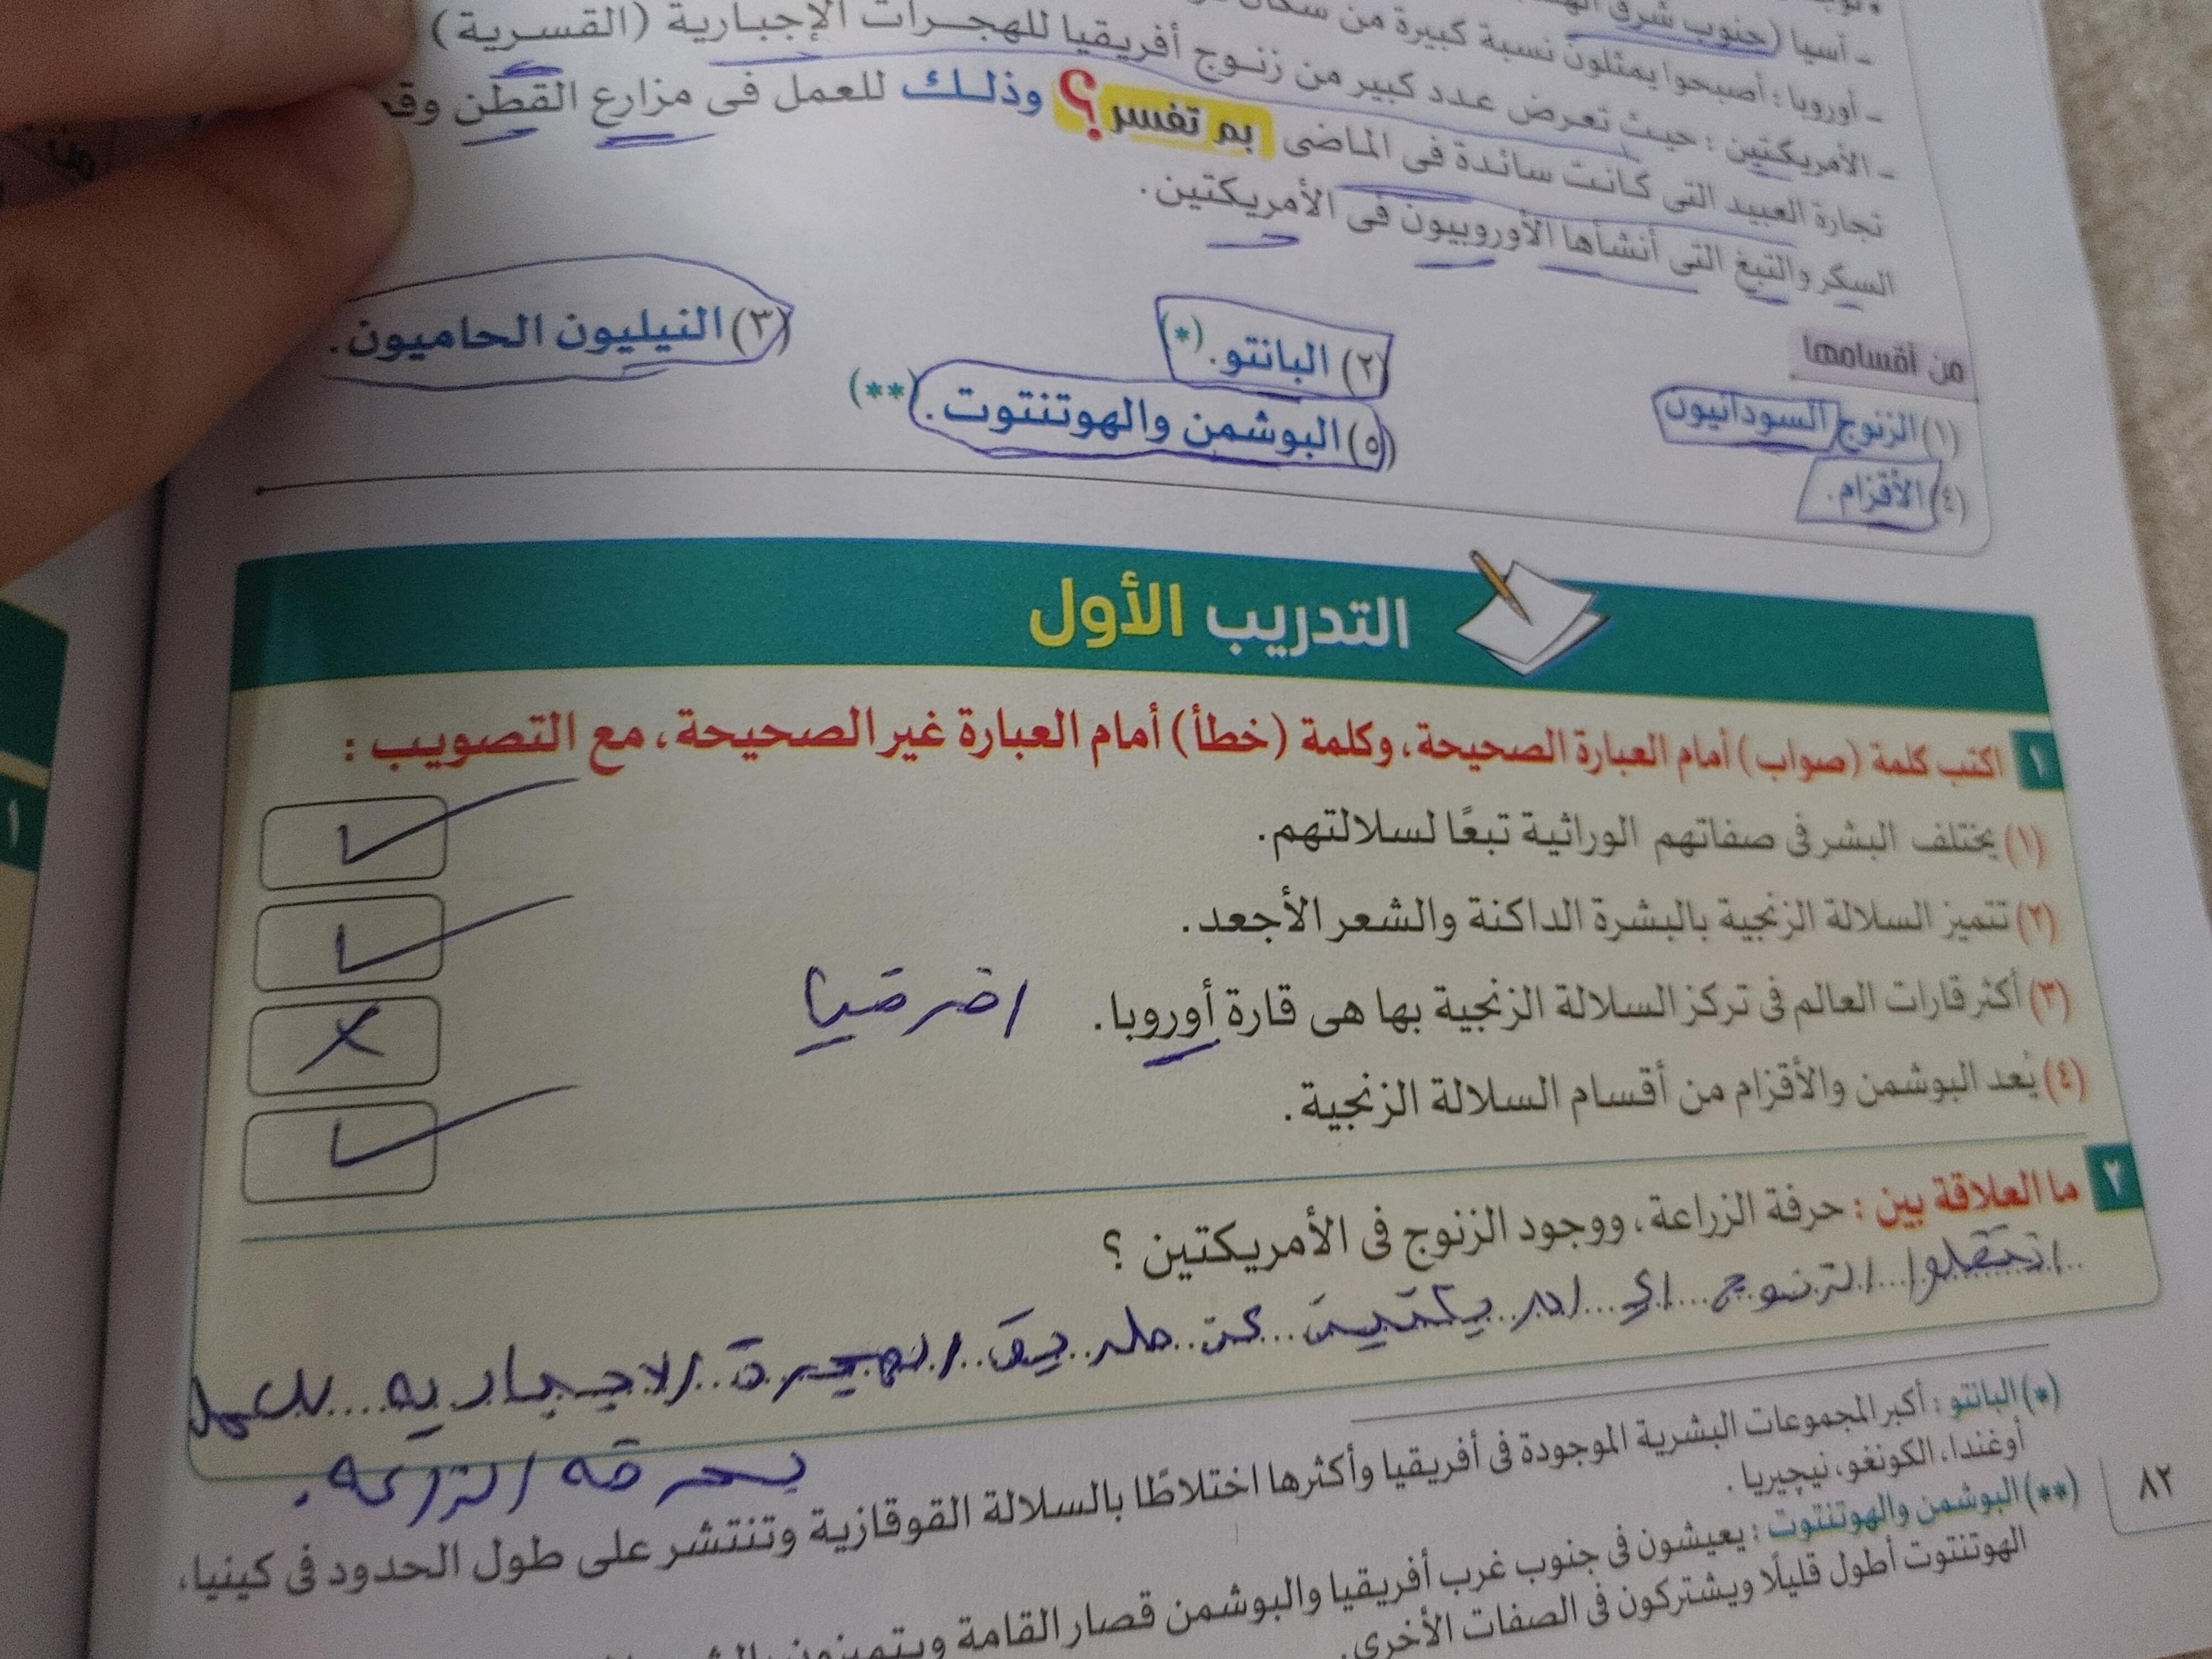 - آسيا (جنوب شرق
- أوروبا : أصبحوا يمثلون نسبة كبيرة من سكان
- الأمريكتين : حيث تعرض عدد كبير من زنوج أفريقيا للهجرات الإجبارية (القسرية)
تجارة العبيد التى كانت سائدة فى الماضى بم تفسر ؟ وذلك للعمل فى مزارع القطن
السكر والتبغ التى أنشأها الأوروبيون فى الأمريكتين.
من أقسامها
(١) الزنوج السودانيون (٢) البانتو. (*) (٣) النيليون الحاميون.
(٤) الأقزام. (٥) البوشمن والهوتنتوت. (**)
التدريب الأول
١ اكتب كلمة (صواب) أمام العبارة الصحيحة، وكلمة (خطأ) أمام العبارة غير الصحيحة، مع التصويب :
(١) يختلف البشر فى صفاتهم الوراثية تبعًا لسلالتهم. ✓
(٢) تتميز السلالة الزنجية بالبشرة الداكنة والشعر الأجعد. ✓
(٣) أكثر قارات العالم فى تركز السلالة الزنجية بها هى قارة أوروبا. افرقيا ✗
(٤) يُعد البوشمن والأقزام من أقسام السلالة الزنجية. ✓
٢ ما العلاقة بين : حرفة الزراعة، ووجود الزنوج فى الأمريكتين ؟
انتقلوا الزنوج الي امريكتين عن طريق الهجرة الاجباريه للعمل
بحرفه الزراعه.
(*) البانتو : أكبر المجموعات البشرية الموجودة فى أفريقيا وأكثرها اختلاطًا بالسلالة القوقازية وتنتشر على طول الحدود فى كينيا،
أوغندا، الكونغو، نيچيريا.
(**) البوشمن والهوتنتوت : يعيشون فى جنوب غرب أفريقيا والبوشمن قصار القامة ويتميزون
الهوتنتوت أطول قليلًا ويشتركون فى الصفات الأخرى.
٨٢
١